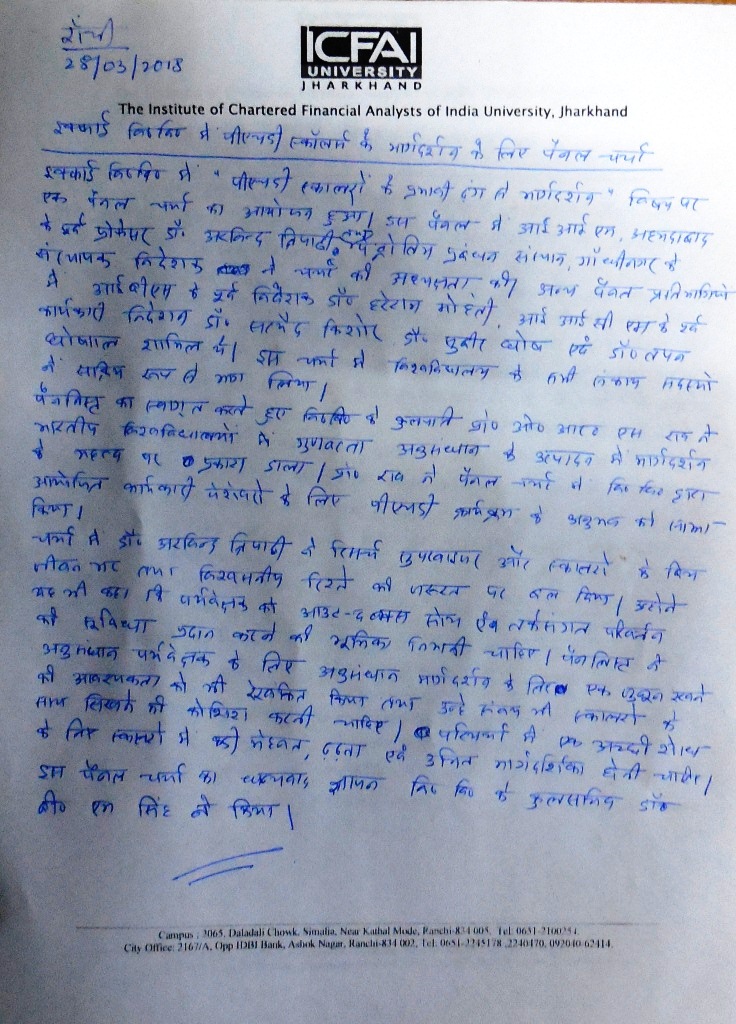 राँची
28/03/2018
ICFAI
UNIVERSITY
JHARKHAND
The Institute of Chartered Financial Analysts of India University, Jharkhand
इक्फाई वि०वि० में पीएचडी स्कॉलर्स के मार्गदर्शन के लिए पैनल चर्चा
इक्फाई वि०वि० में "पीएचडी स्कालरों के प्रभावी ढंग से मार्गदर्शन" विषय पर
एक पैनल चर्चा का आयोजन हुआ। इस पैनल में आई आई एम, अहमदाबाद
के पूर्व प्रोफेसर डॉ० अरविन्द त्रिपाठी, प्रबंधन संस्थान, गाँधीनगर के
संस्थापक निदेशक ने चर्चा की अध्यक्षता की। अन्य पैनल प्रतिभागियों
में आईबीएम के पूर्व निदेशक डॉ० हरेराम मोहंती, आई आई सी एम के पूर्व
कार्यकारी निदेशक डॉ० किशोर डॉ० सुबीर घोष एवं डॉ० तपन
घोषाल शामिल थे। इस चर्चा में विश्वविद्यालय के सभी संकाय सदस्यों
ने सक्रिय रूप से भाग लिया।
पैनलिस्ट का स्वागत करते हुए वि०वि० के कुलपति प्रो० ओ० आर० एस राव ने
भारतीय विश्वविद्यालयों में गुणवत्ता अनुसंधान के उत्पादन में मार्गदर्शन
के महत्व पर प्रकाश डाला। प्रो० राव ने पैनल चर्चा में वि० वि० द्वारा
आयोजित कार्यकारी पेशेवरों के लिए पीएचडी कार्यक्रम के अनुभव को साझा
किया।
चर्चा में डॉ० अरविन्द त्रिपाठी ने रिसर्च सुपरवाइजर और स्कालरों के बिच
जीवन भर तथा विश्वसनीय रिश्ते की जरूरत पर बल दिया। उन्होंने
यह भी कहा कि पर्यवेक्षक को आउट-द बाक्स सोच एवं तर्कसंगत परिवर्तन
की सुविधा प्रदान करने की भूमिका निभानी चाहिए। पैनलिस्ट ने
अनुसंधान पर्यवेक्षक के लिए अनुसंधान मार्गदर्शन के लिए एक जुनून रखने
की आवश्यकता को भी रेखांकित किया तथा उन्हें स्कालरों के
साथ लिखने की कोशिश करनी चाहिए। पत्रिकाओं में एक अच्छी शोध
के लिए स्कालरों में कड़ी मेहनत, दृढ़ता एवं उचित मार्गदर्शिका होनी चाहिए।
इस पैनल चर्चा का धन्यवाद ज्ञापन वि० वि० के कुलसचिव डॉ०
बी० एम सिंह ने किया।
Campus : 2065, Daladali Chowk, Simalia, Near Kathal Mode, Ranchi-834 005, Tel: 0651-2100254
City Office: 2167/A, Opp IDBI Bank, Ashok Nagar, Ranchi-834 002, Tel: 0651-2245178 ,2240470, 092040-62414.